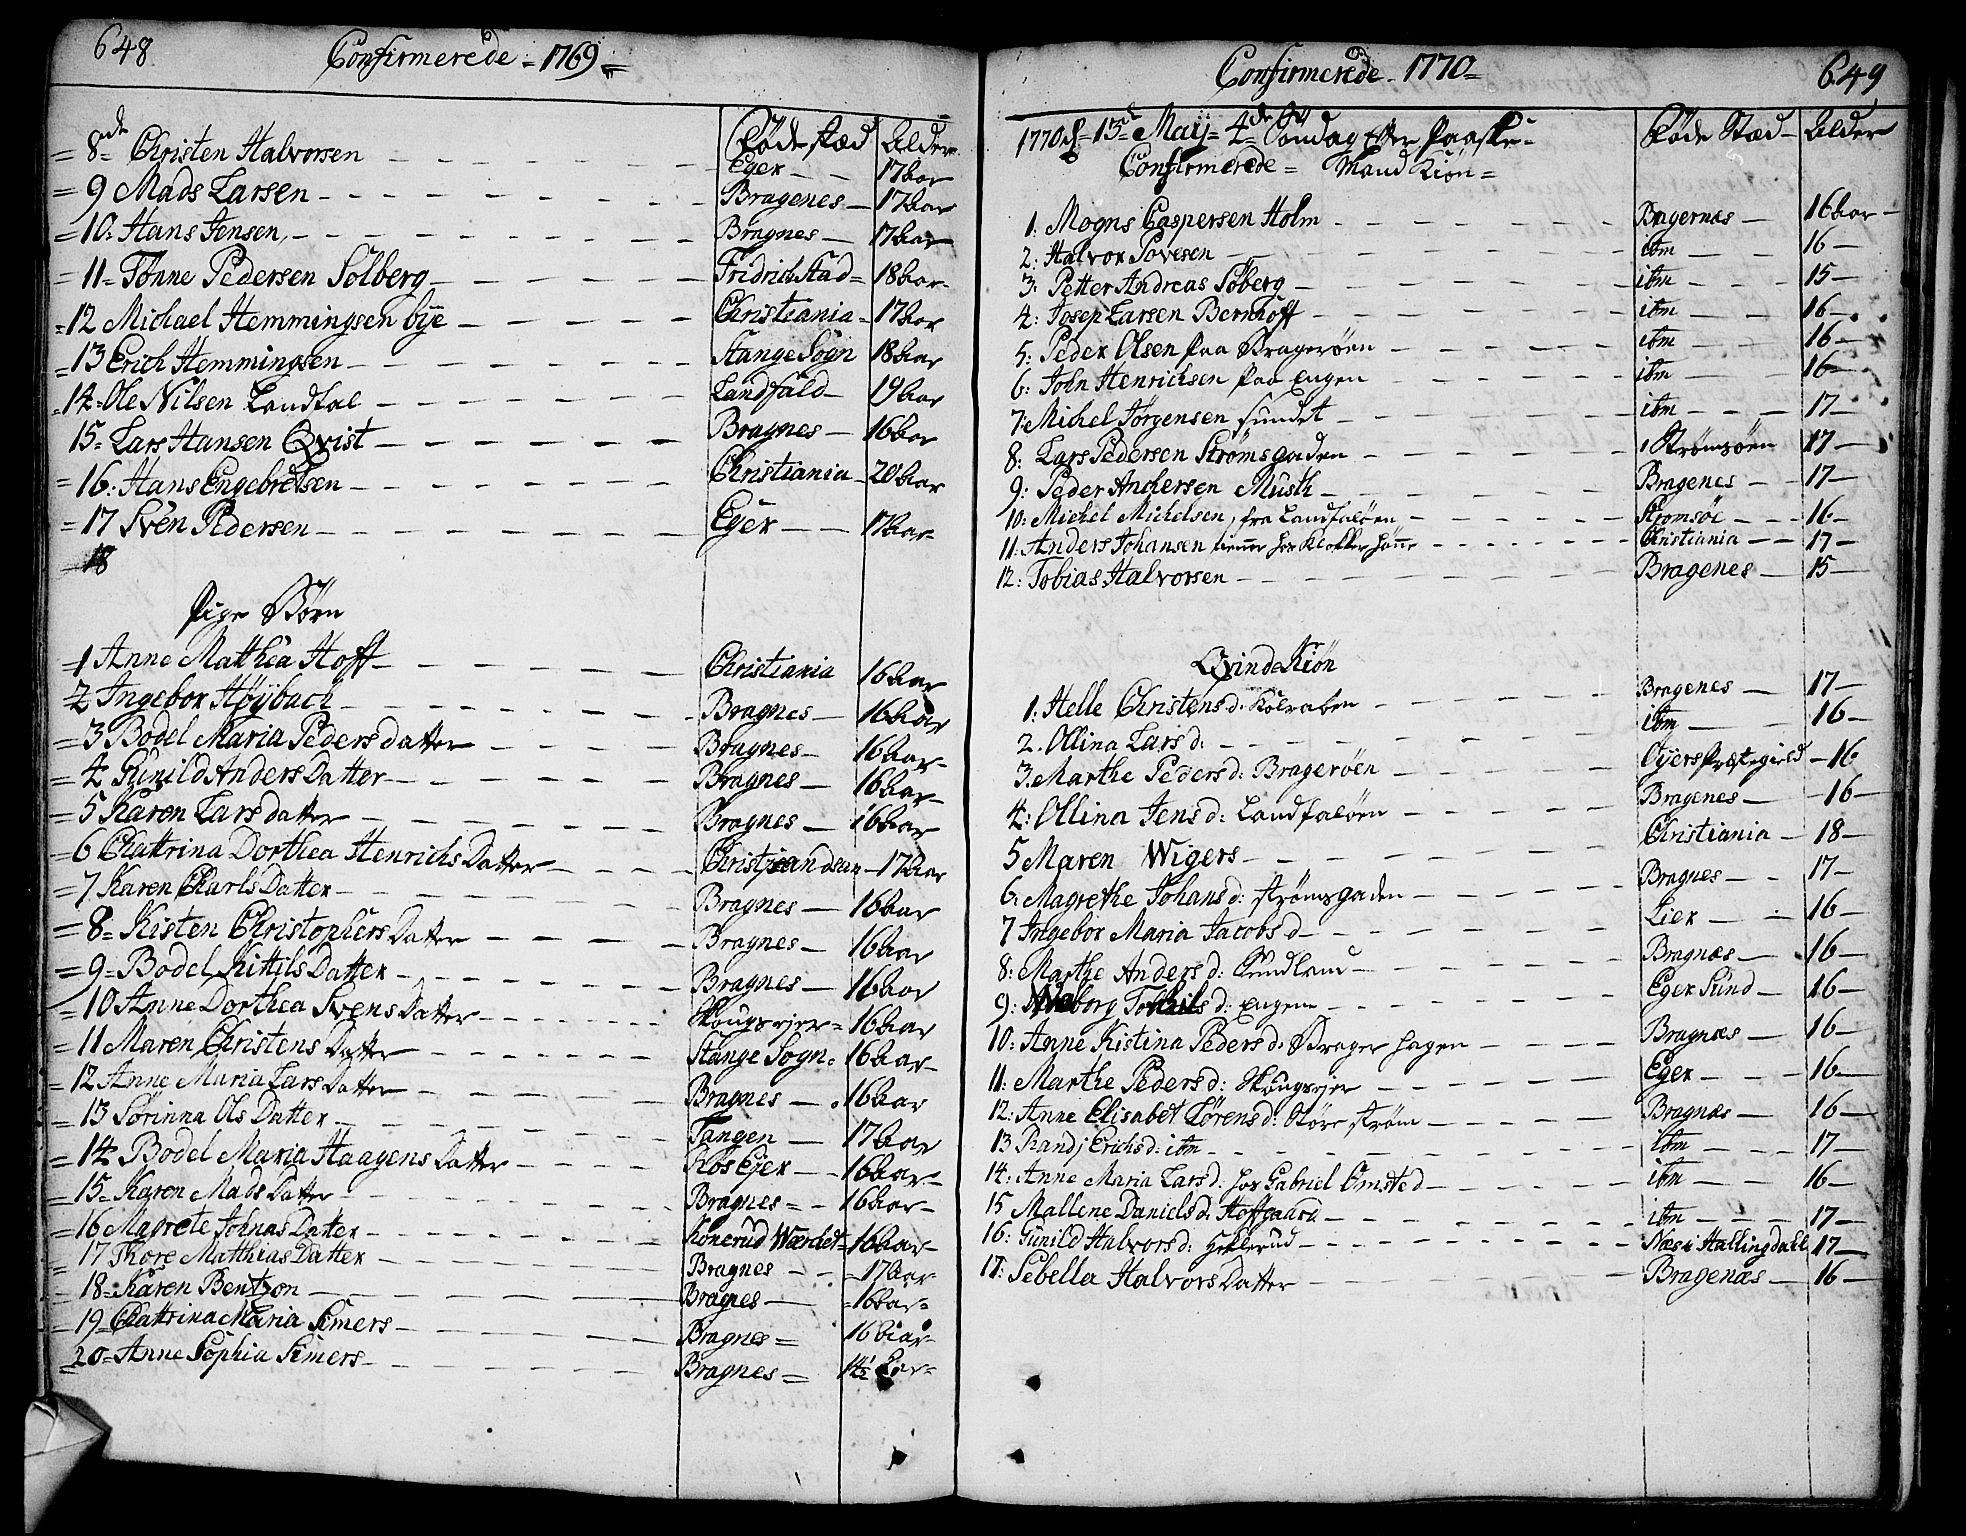 648 Confirmerede = 1769 =
Føde stæd Alder
= 8de = Christen Halvorsen Eger 17 aar
= 9 Mads Larsen Bragenes 17 aar
= 10: Hans Jensen Bragnes 17 aar
= 11 = Tønne Pedersen Sølberg Fridrichstad = 18 aar
= 12 Michael Hemmingsen bÿe Christiania = 17 aar
= 13 Erich Hemmingsen Stange Sogn 18 aar
= 14 = Ole Nilsen Landfal Landfald 19 aar
15 = Lars Hansen Qvist Bragnes 16 aar
= 16: Hans Engebretsen Christiania 20 aar
= 17 Svën Pedersen Eger 17 aar
18
Pige Børn
= 1 Anne Mathëa Hoff Christiania 16 aar
2 Ingebor Høÿbach Bragnes 16 aar
= 3 Bodel Maria Peders datter Bragnes 16 aar
= 4 Gunild Anders Datter Bragnes 16 aar
= 5 Karen Lars datter Bragnes 16 aar
= 6 Chattrina Dorthea Henrichs Datter Christiandsan 17 aar
= 7 Karen Charls Datter Bragnes 16 aar
= 8 = Kisten Christophers Datter Bragnes 16 aar
= 9 = Bodel Kittils Datter Bragnes 16 aar
= 10 Anne Dorthea Svens Datter Skougsejer = 16 aar
= 11 Maren Christens Datter Stange Sogn = 16 aar
= 12 Anne Maria Lars Datter Bragnes 16 aar
= 13 Sørinna Ols Datter Tangen 17 aar
= 14 Bodel Maria Haagens Datter Kos Ejer 16 aar
= 15 = Karen Mads Datter Bragnes = 16 aar
= 16 Magrete Johnas Datter Konerud Wærdet = 16 aar
= 17 Thore Matthias Datter Bragnes 17 aar
= 18 = Karen Bentzon Bragnes = 16 aar =
= 19 = Chattrina Maria Simers Bragnes = 16 aar
= 20 = Anne Sophia Simers Bragnes = 14½ aar =
Confirmerede 1770 = 649
1770 d = 13de Maij = 4de Søndag Efter Paaske = Føde Stæd Alder
Confirmerede = Mand Kiøn =
1: Mogns Caspersen Holm Bragernæs 16 aar
2: Halvor Povesen ibm 16
3: Petter Andreas Søberg ibm 15
4: Josep Larsen Bernhoff ibm 16
5: Peder Olsen paa Bragerøen ibm 16
6: John Henrichsen paa Engen ibm 16
7: Michel Jørgensen sundet ibm 17
8: Lars Pedersen Strømsgaden Strømsøen 17
9: Peder Andersen Musth Bragenes 17
10: Michel Michelsen, fra Landfaløen Stromsøe 16
11: Anders Johansen tiener hos Klokker Christiania 17
12: Tobias Halvorsen Bragenes 15
Qvinde Kiøn
1: Helle Christens d: Kølraben Bragenes 17
2. Ollina Lars d: ibm 16
3: Marthe Peders d: Bragerøen Oÿers præstegield 16
4: Ollina Jens d: Landfaløen Bragenes 16
5 Maren Wigers Christiania 18
6: Magrethe Johans d: strømsgaden Bragnes 17
7 Ingebor Maria Jacobs d Lier 16
8: Marthe Anders d: Bragnæs 16
9: Tolkils d: Engene Eger Sund 16
10: Anne Kistina Peders d: Brager Hagen Bragnæs 16
11: Marthe Peders d: Skougsejer Eger 16
12: Anne Elisabet Sørens d: Store strøm Bragnæs 16
13 Randj Erichs d: ibm ibm 17
14: Anne Maria Lars d: hos Gabriel Omsted ibm 16
15 Mallene Daniels d: Hoffgaard ibm 17
16: Gunild Halvors d: Hellerud Næs i Hallingdahl 17
17: Sebella Halvors Datter Bragenæs 16